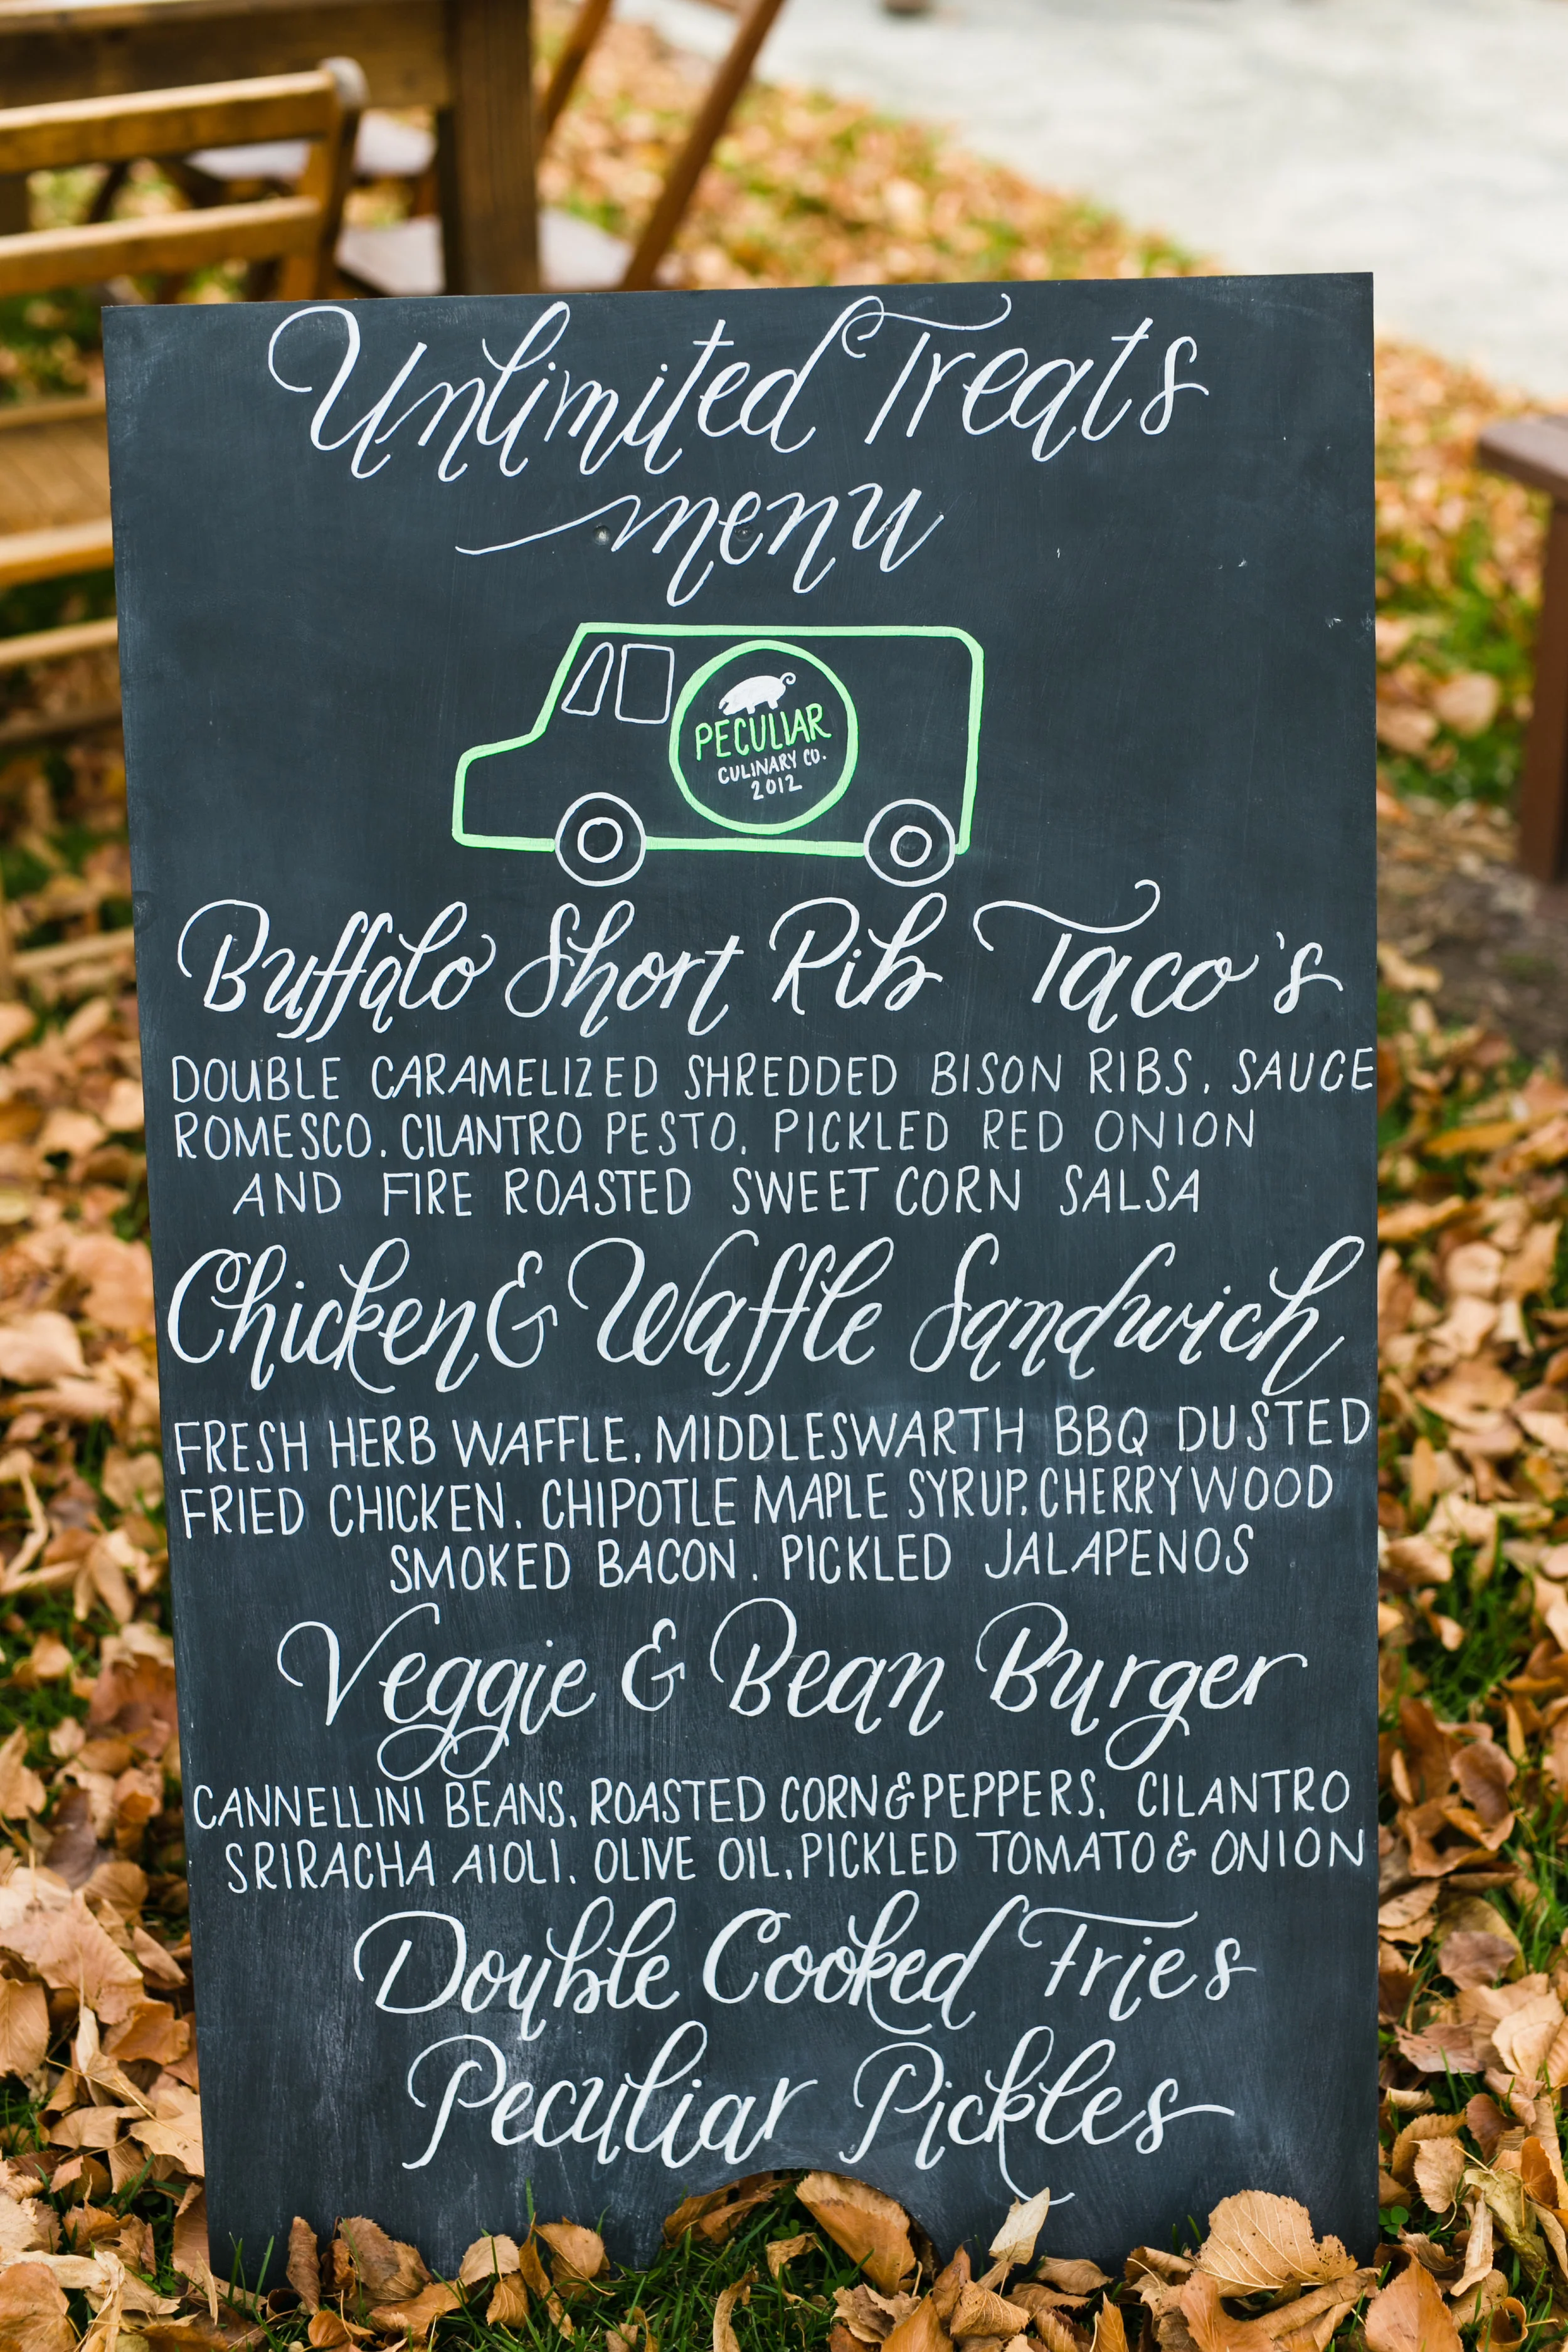 Unlimited Treats
menu
PECULIAR
CULINARY CO.
2012
Buffalo Short Rib Taco's
DOUBLE CARAMELIZED SHREDDED BISON RIBS, SAUCE
ROMESCO, CILANTRO PESTO, PICKLED RED ONION
AND FIRE ROASTED SWEET CORN SALSA
Chicken & Waffle Sandwich
FRESH HERB WAFFLE, MIDDLESWARTH BBQ DUSTED
FRIED CHICKEN, CHIPOTLE MAPLE SYRUP, CHERRYWOOD
SMOKED BACON, PICKLED JALAPENOS
Veggie & Bean Burger
CANNELLINI BEANS, ROASTED CORN & PEPPERS, CILANTRO
SRIRACHA AIOLI, OLIVE OIL, PICKLED TOMATO & ONION
Double Cooked Fries
Peculiar Pickles